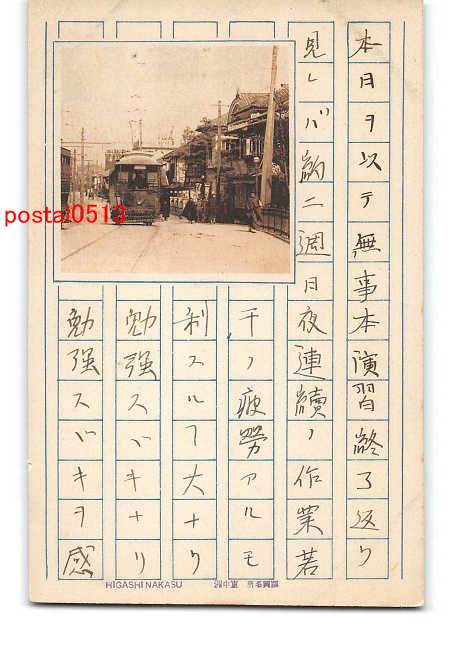 本日ヲ以テ無事本演習終了返リ
見レバ約二週日夜連続ノ作業若
干ノ疲労アルモ
利スルヿ大ナリ
勉強スベキナリ
勉強スベキヲ感
postal0513
HIGASHI NAKASU 福岡名所 東中洲